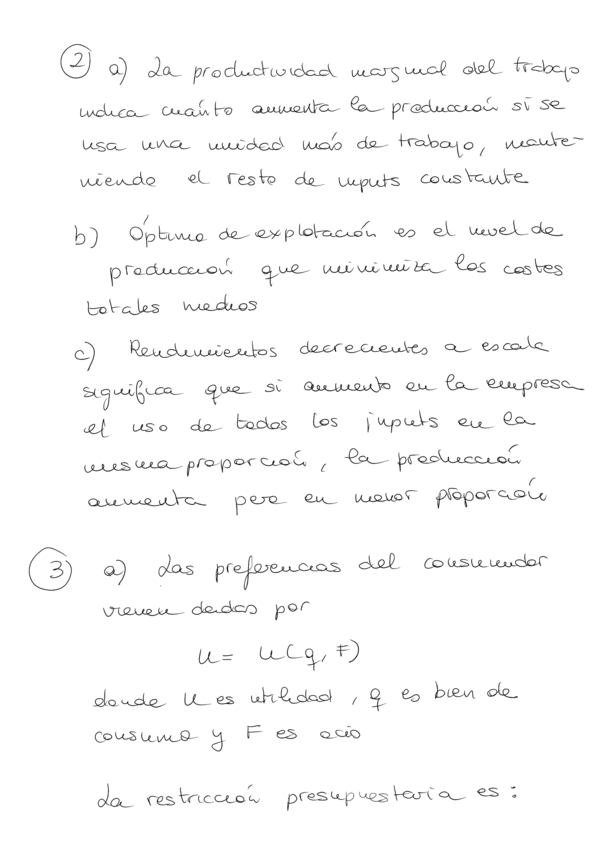 2 a) La productividad marginal del trabajo
indica cuánto aumenta la producción si se
usa una unidad más de trabajo, mante-
niendo el resto de inputs constante
b) Óptimo de explotación es el nivel de
producción que minimiza los costes
totales medios
c) Rendimientos decrecientes a escala
significa que si aumento en la empresa
el uso de todos los inputs en la
misma proporción, la producción
aumenta pero en menor proporción
3) a) Las preferencias del consumidor
vienen dadas por
U = U(q, F)
donde U es utilidad, q es bien de
consumo y F es ocio
La restricción presupuestaria es: